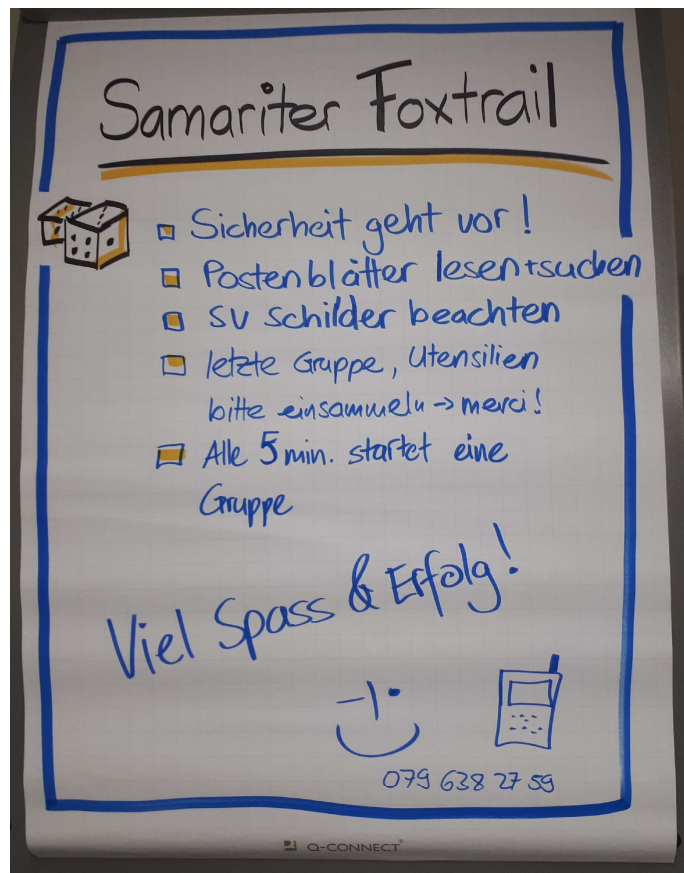 Samariter Foxtrail
Sicherheit geht vor!
Postenblätter lesen+suchen
SV Schilder beachten
letzte Gruppe, Utensilien
bitte einsammeln → merci!
Alle 5 min. startet eine
Gruppe
Viel Spass & Erfolg!
079 638 27 59
Q-CONNECT®